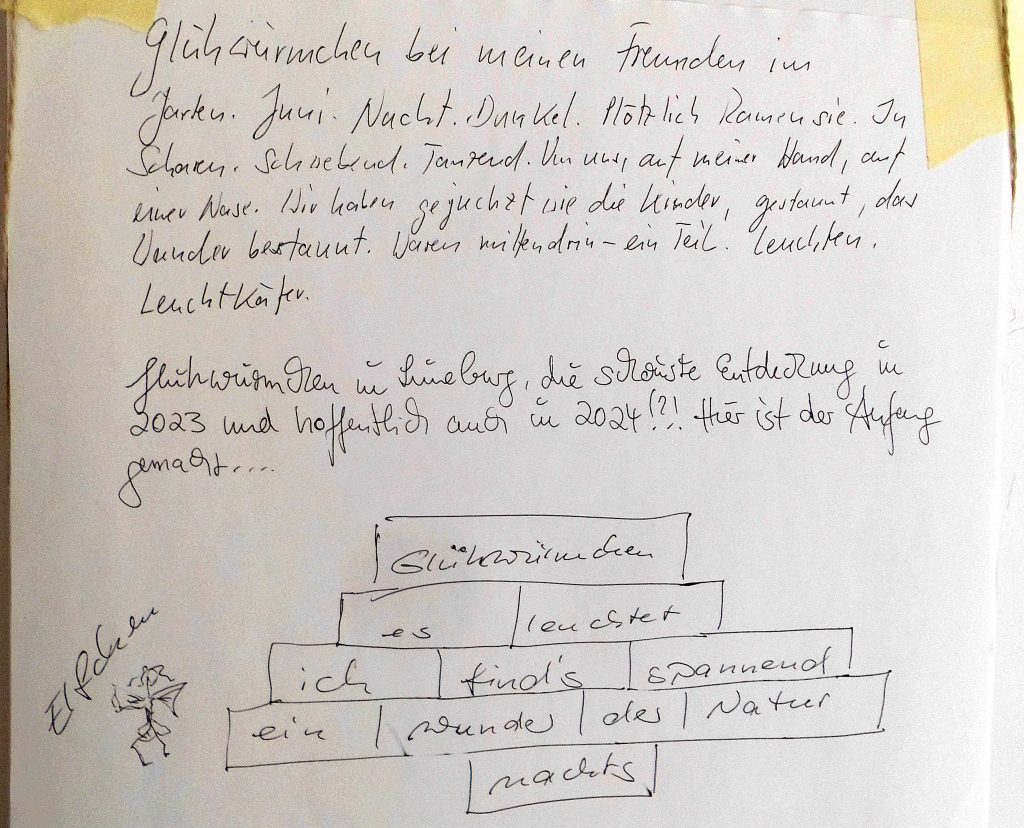 Glühwürmchen bei meinen Freunden im
Garten. Juni. Nacht. Dunkel. Plötzlich kamen sie. In
Scharen. Schwebend. Tanzend. Um uns, auf meiner Hand, auf
einer Nase. Wir haben gejuchzt wie die Kinder, gestaunt, das
Wunder bestaunt. Waren mittendrin – ein Teil. Leuchten.
Leuchtkäfer.
Glühwürmchen in Lüneburg, die schönste Entdeckung in
2023 und hoffentlich auch in 2024!?! Hier ist der Anfang
gemacht....
Glühwürmchen
es leuchtet
ich find's spannend
ein wunder der Natur
nachts
Elfchen